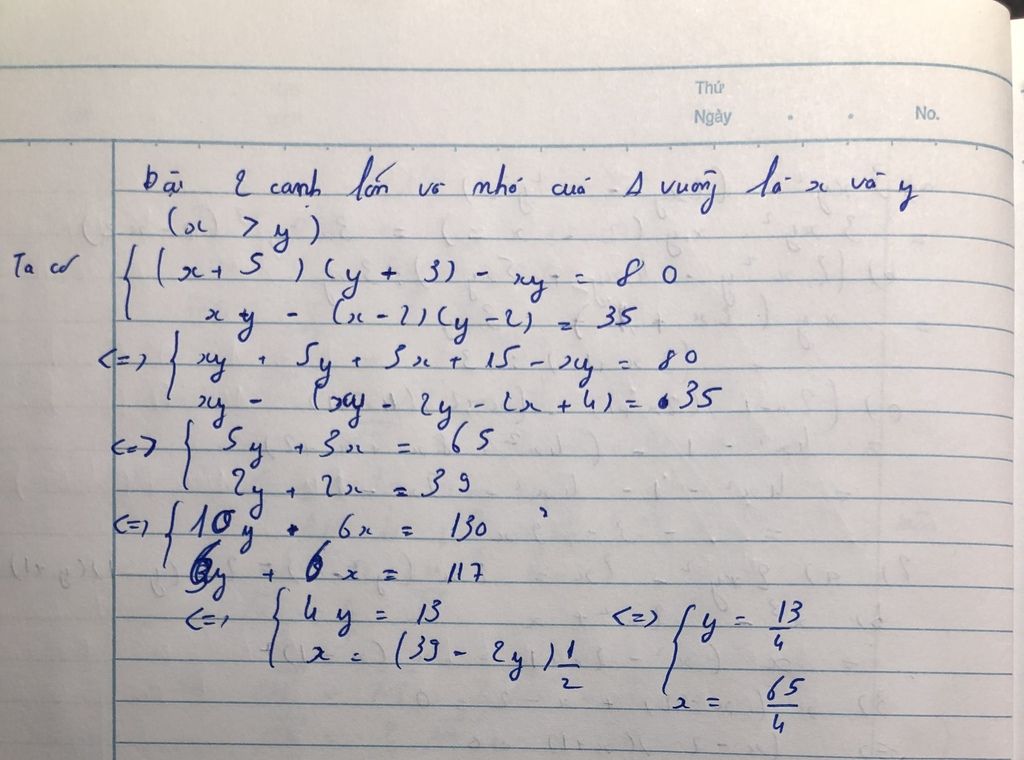 Thứ
Ngày . . No.
bài 2 cạnh lớn và nhỏ cuả Δ vuông là x và y
(x > y)
Ta có { (x + 5 ) (y + 3) - xy = 8 0
xy - (x - 2) (y - 2) = 35
<=> { xy + 5y + 3x + 15 - xy = 80
xy - (xy - 2y - 2x + 4) = 35
<=> { 5y + 3x = 65
2y + 2x = 39
<=> { 10y + 6x = 130
6y + 6x = 117
<=> { 4y = 13 <=> { y = 13/4
x = (39 - 2y) 1/2
x = 65/4